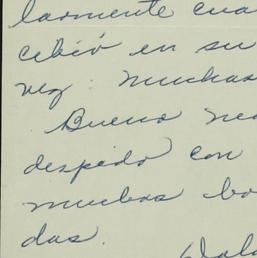 larmente cua
cibió en su
vez. muchas
Bueno ne
despido con
muchos bo
das.